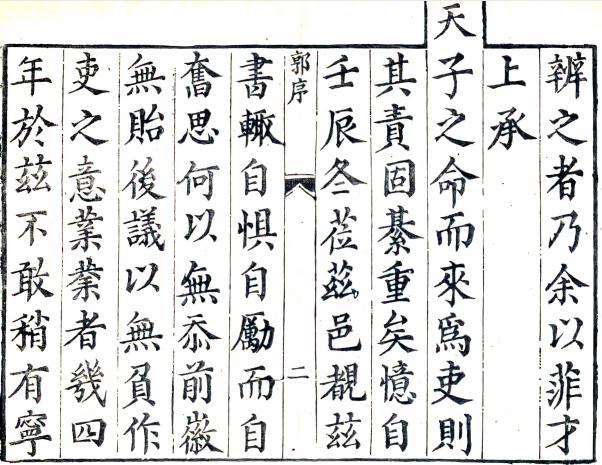 辨之者乃余以菲才
上承
天子之命而來為吏則
其責固綦重矣憶自
壬辰冬莅茲邑覩茲
郭序 二
書輙自惧自勵而自
奮思何以無忝前徽
無貽後議以無負作
吏之意業業者幾四
年於茲不敢稍有寧